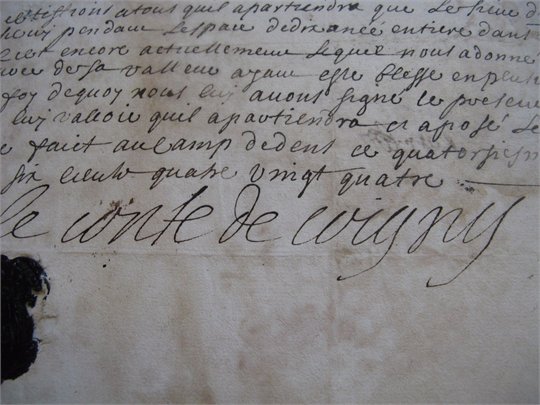 certiffions a tous quil apartiendra que le sieur d
pendant lespace dedix année entiere dans
encore actuellement lequel nous adonné
de sa valleur ayant esté blessé en plu
foy dequoy nous luy auons signé le presen
luy valloir quil apartiendra et aposé le
faict au camp dedent ce quatorsiesm
six cents quatre vingt quatre
le conte de coigny